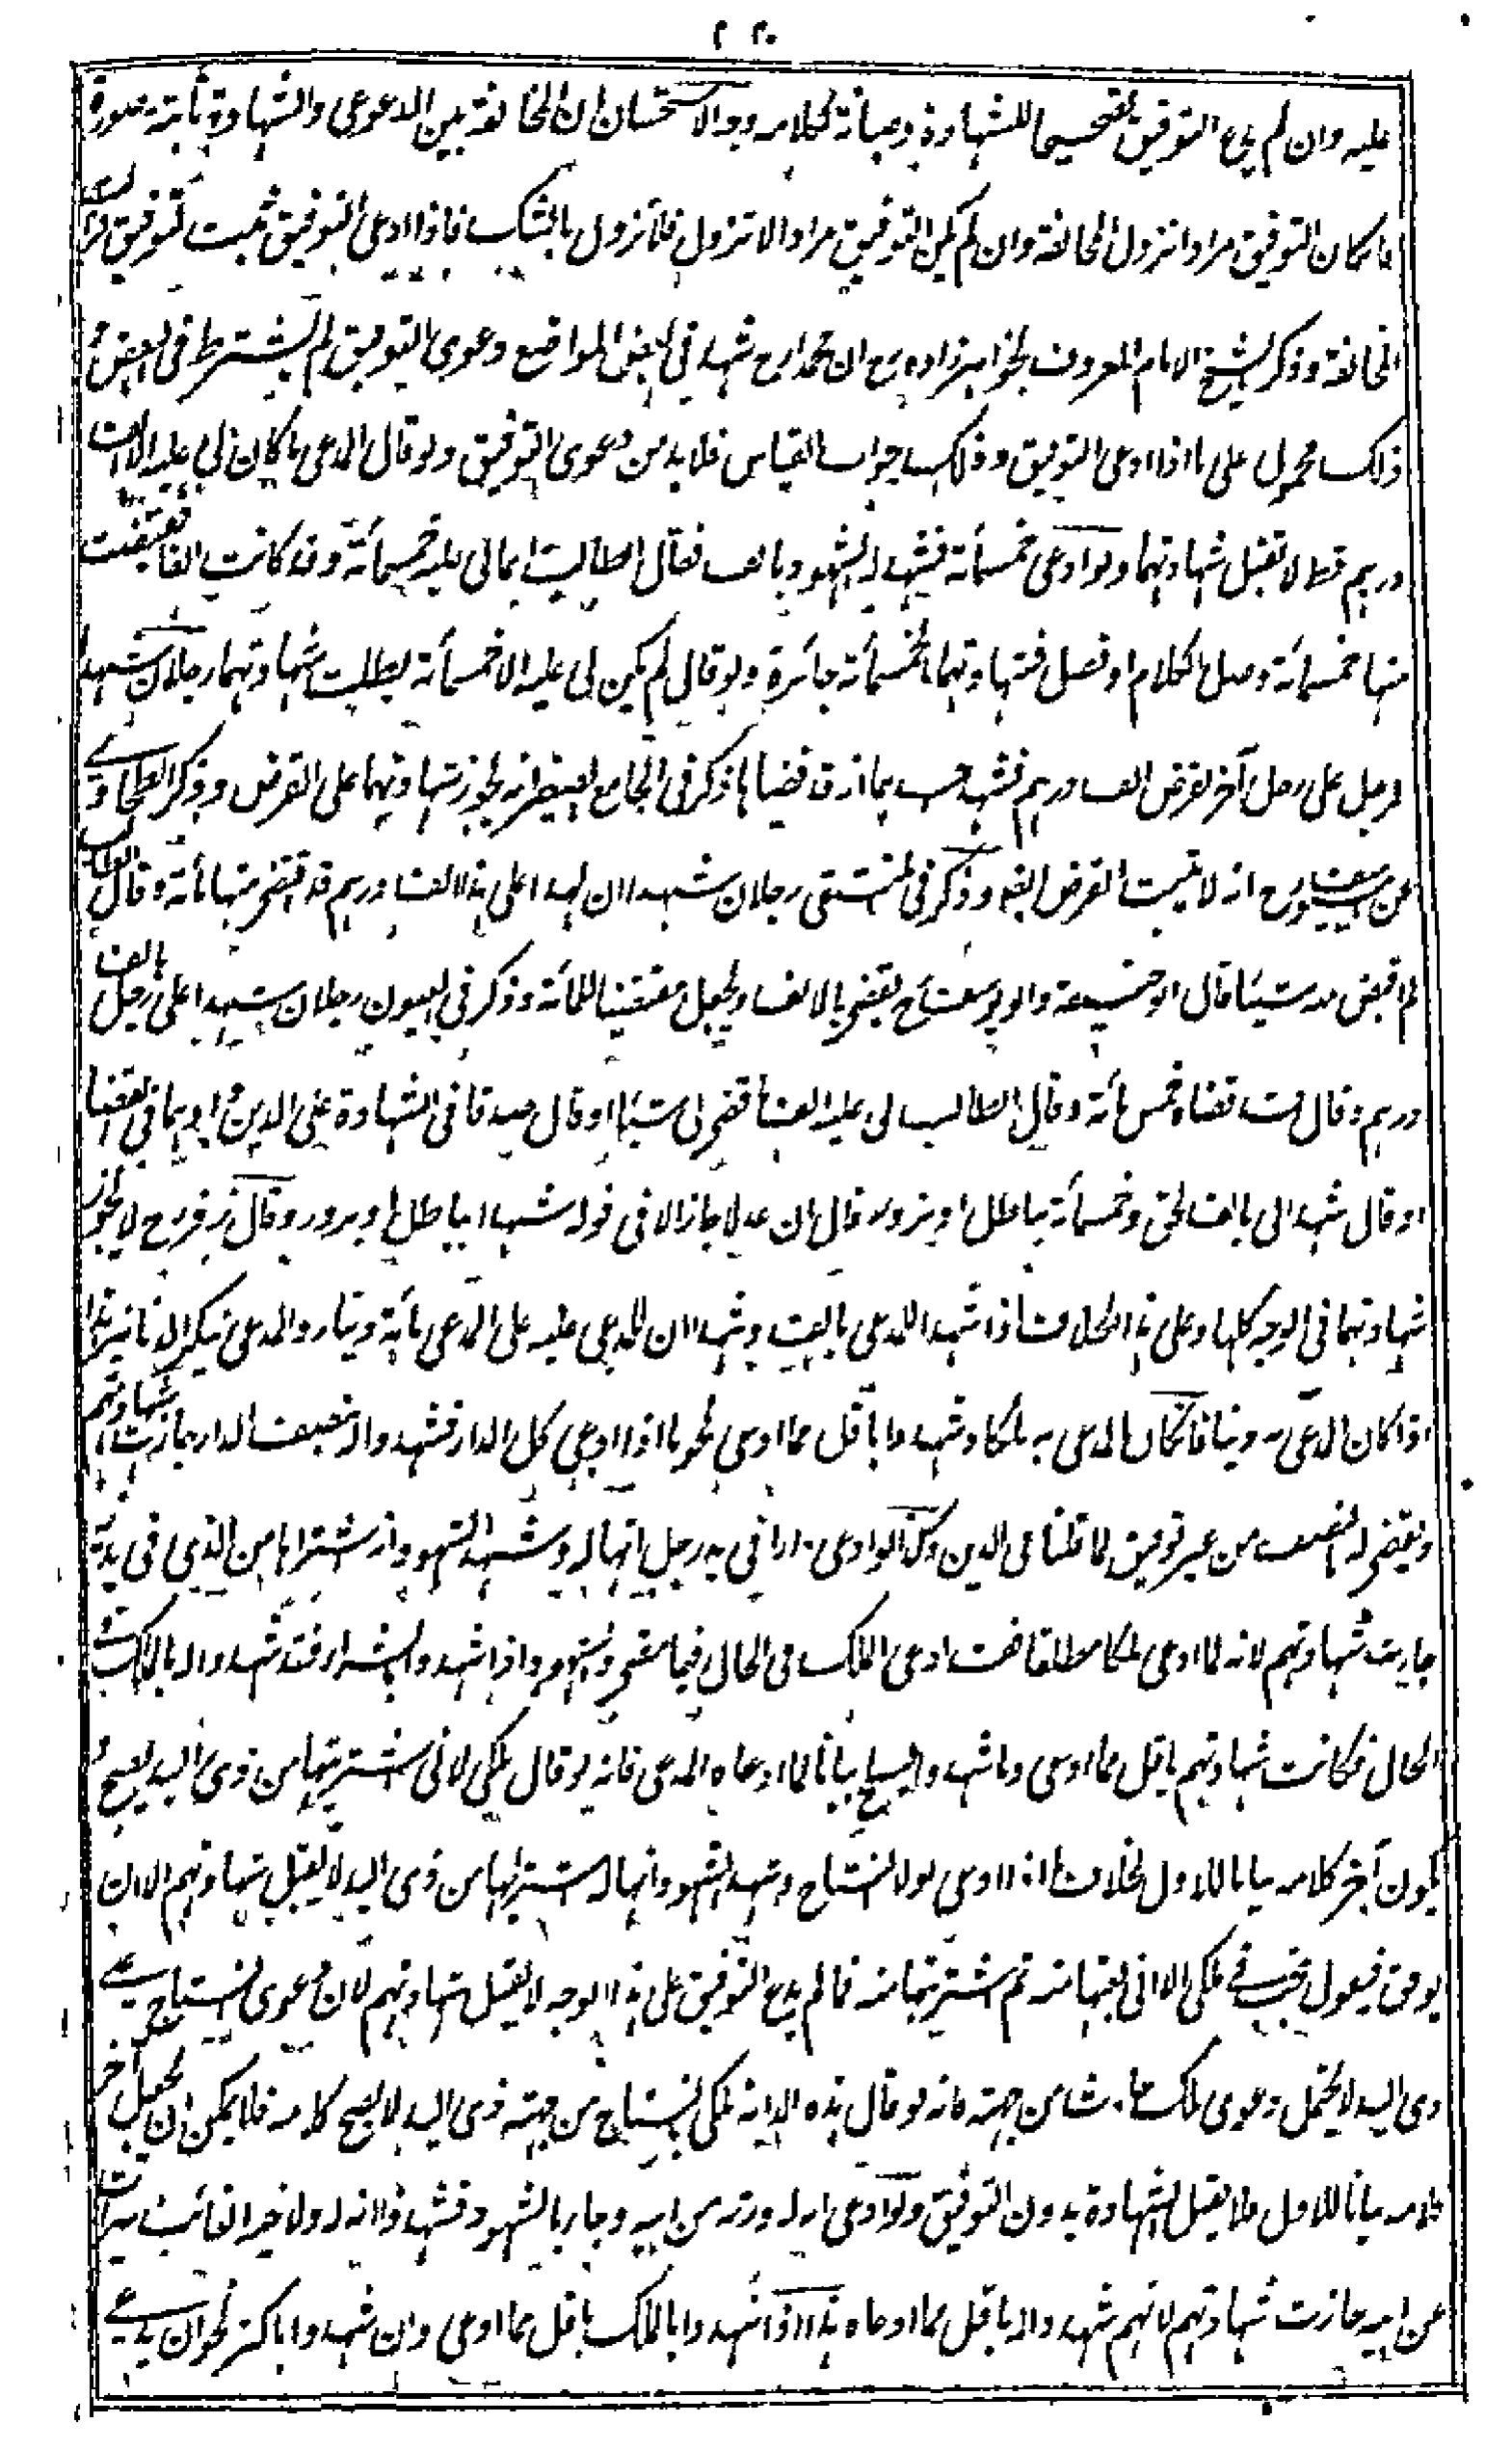 ٢٢٠
عليه وان لم يدع التوفيق تصحيحا للشهادة وصيانة لكلامه وجه الاستحسان ان المخالفة بين الدعوى والشهادة ثابتة صورة
فان كان التوفيق مرادا تزول المخالفة وان لم يكن التوفيق مرادا لا تزول فلا تزول بالشك فاذا ادعى التوفيق ثبت التوفيق وزالت
المخالفة وذكر الشيخ الامام المعروف بخواهر زاده رح ان محمدا رح شرط في بعض المواضع دعوى التوفيق ولم يشترط في البعض و
ذلك محمول على ما اذا ادعى التوفيق وذلك جواب القياس فلا بد من دعوى التوفيق ولو قال المدعي ما كان لي عليه الا الف
درهم قط لا تقبل شهادتهما ولو ادعى خمسمائة فشهد له الشهود بالف فقال الطالب انما لي عليه خمسمائة وقد كانت الفا فقبضت
منها خمسمائة وصل الكلام او فصل فشهادتهما بخمسمائة جائزة ولو قال لم يكن لي عليه الا خمسمائة بطلت شهادتهما رجلان شهدا
لرجل على رجل آخر بقرض الف درهم فشهد احدهما انه قد قضاها ذكر في الجامع الصغير انه يجوز شهادتهما على القرض وذكر الطحاوي
عن ابي يوسف رح انه لا يثبت القرض ايضا وذكر في المنتقى رجلان شهدا ان لهذا على هذا الف درهم قد اقتضى منها مائة وقال الطالب
لم اقبض منه شيئا قال ابو حنيفة وابو يوسف رح يقضى بالالف ويجعل مقتضيا للمائة وذكر في العيون رجلان شهدا على رجل بالف
درهم وقالا قد قضاه خمس مائة وقال الطالب لي عليه الف ما قضى لي شيئا او قال صدقا في الشهادة على الدين واوهما في القضاء
او قال شهدا لي بالف بحق وخمسمائة بباطل او بزور قال ان عدلا جاز الا في قوله شهدا بباطل او بزور وقال زفر رح لا يجوز
شهادتهما في الوجوه كلها وعلى هذا الخلاف اذا شهدا للمدعي بالف وشهدا ان للمدعى عليه على المدعي مائة دينار والمدعي ينكر الدنانير هذا
اذا كان المدعى به دينا فان كان المدعى به ملكا وشهدوا باقل مما ادعى نحو ما اذا ادعى كل الدار فشهدوا له بنصف الدار جازت شهادتهم
ويقضى له بالنصف من غير توفيق لما قلنا في الدين وكذا لو ادعى دارا في يد رجل انها له وشهد الشهود انه اشتراها من الذي في يديه
جازت شهادتهم لانه لما ادعى ملكا مطلقا فقد ادعى الملك في الحال فيما مضى والشهود اذا شهدوا بالشراء فقد شهدوا له بالملك في
الحال فكانت شهادتهم باقل مما ادعى وما شهدوا به يصلح بيانا لما ادعاه المدعي فانه لو قال ملكي لاني اشتريتها من ذي اليد يصح و
يكون آخر كلامه بيانا للاول بخلاف ما اذا ادعى اولا النتاج وشهد الشهود انها له اشتراها من ذي اليد لا يقبل شهادتهم الا ان
يوفق فيقول نتجت في ملكي الا اني بعتها منه ثم اشتريتها منه فما لم يدع التوفيق على هذا الوجه لا يقبل شهادتهم لان دعوى النتاج على
ذي اليد لا يحتمل دعوى ملك حادث من جهته فانه لو قال هذه الدابة ملكي بالنتاج من جهة ذي اليد لا يصح كلامه فلا يمكن ان يجعل آخر
كلامه بيانا للاول فلا يقبل الشهادة بدون التوفيق ولو ادعى انه له ورثه من ابيه وجاء بالشهود فشهدوا انه له ولاخيه الغائب ميراث
عن ابيه جازت شهادتهم لانهم شهدوا له باقل مما ادعاه هذا اذا شهدوا بالملك باقل مما ادعى وان شهدوا باكثر نحو ان يدعي